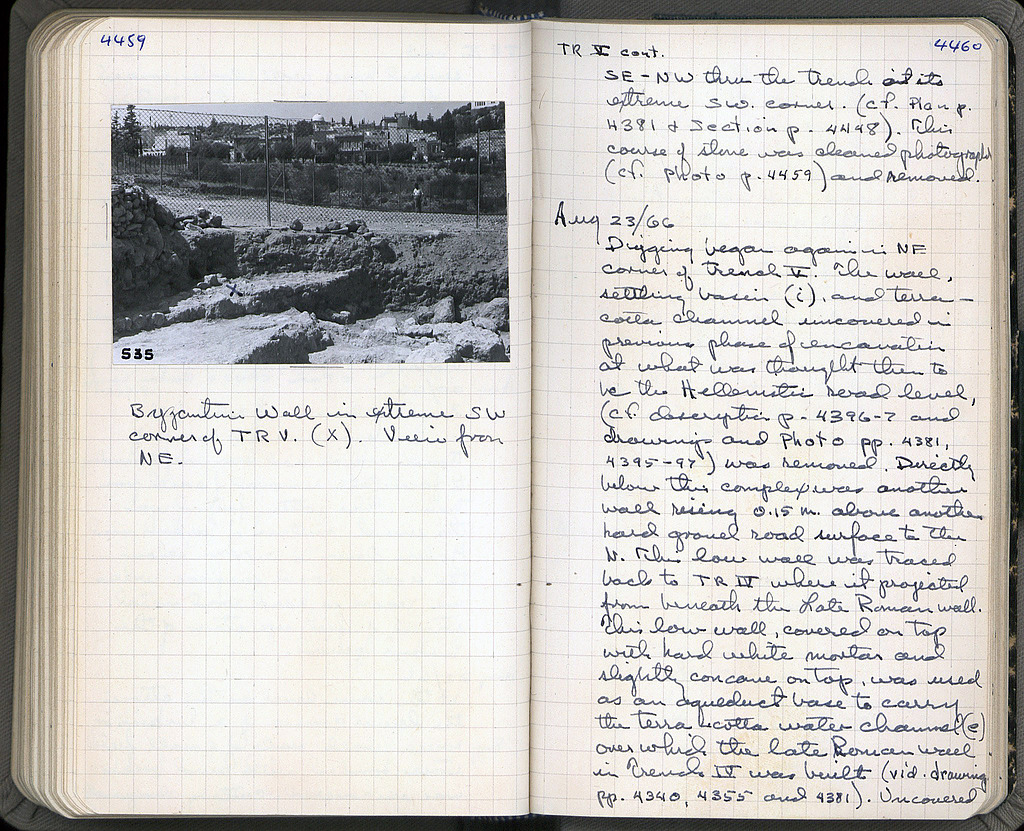 4459
535
Byzantine Wall in extreme SW
corner of TR V. (X). View from
NE.
4460
TR V cont.
SE-NW thru the trench at its
extreme SW. corner. (cf. Plan p.
4381 & Section p. 4448). This
course of stone was cleaned photographed
(cf. photo p. 4459) and removed.
Aug 23/66
Digging began again in NE
corner of Trench V. The wall,
settling basin (i), and terra-
cotta channel uncovered in
previous phase of excavation
at what was thought then to
be the Hellenistic road level,
(cf. description p. 4396-7 and
drawings and Photo pp. 4381,
4395-97) was removed. Directly
below this complex was another
wall rising 0.15 m. above another
hard gravel road surface to the
N. This low wall was traced
back to TR IV where it projected
from beneath the Late Roman wall.
This low wall, covered on top
with hard white mortar and
slightly concave on top, was used
as an aqueduct base to carry
the terra-cotta water channel (e)
over which the late Roman wall
in Trench IV was built (vid. drawing
pp. 4340, 4355 and 4381). Uncovered